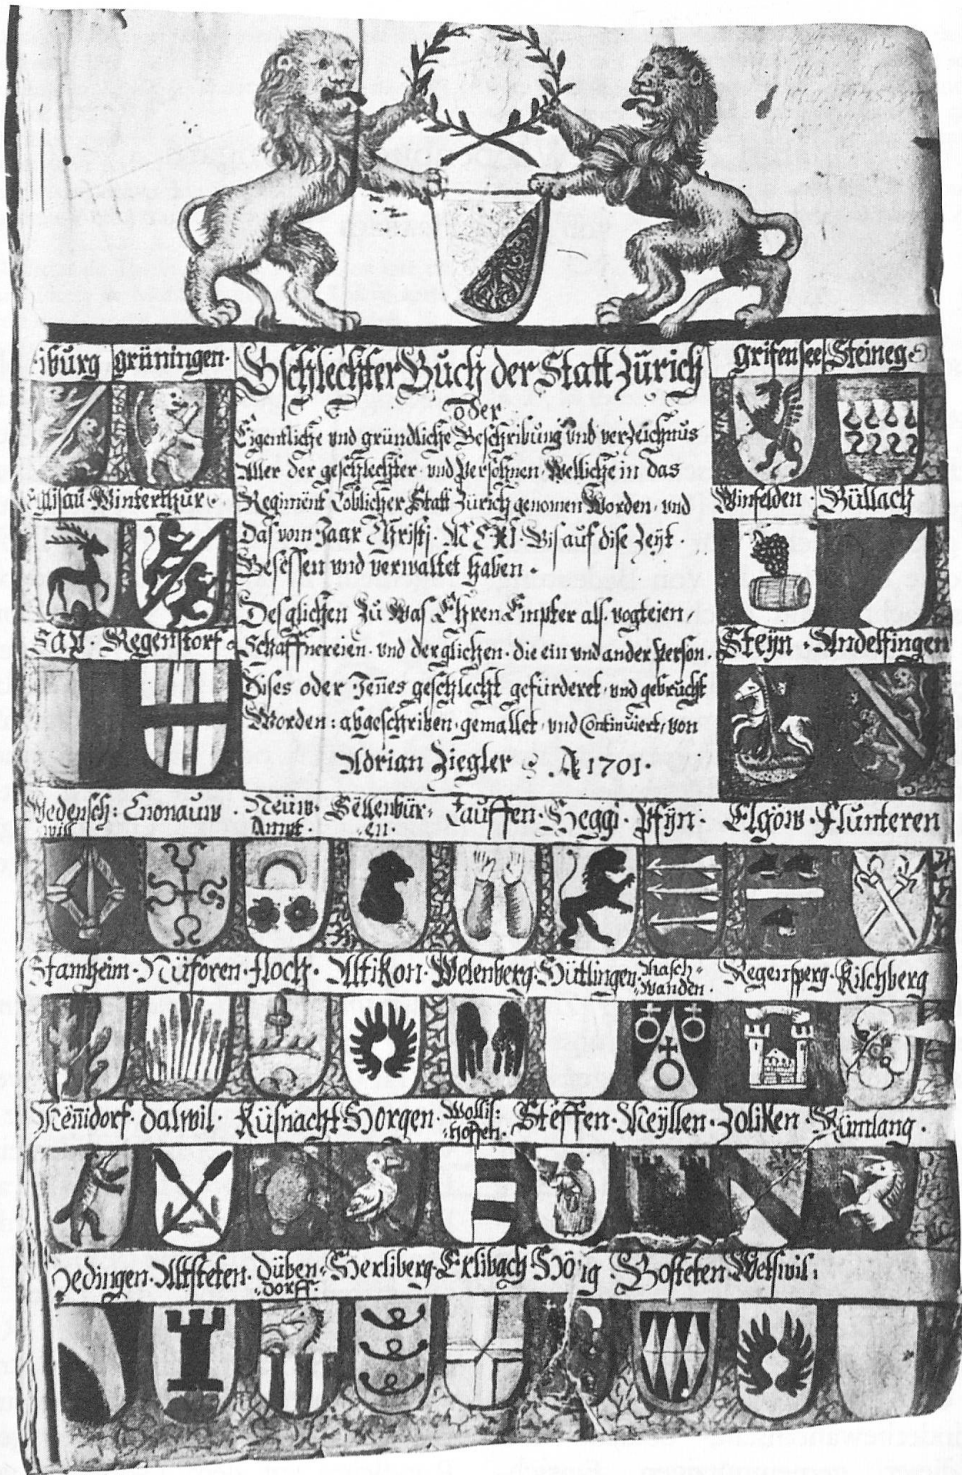 burg grüningen.
Gschlechter Buch der Statt Zürich
oder
Eigentliche und gründliche Beschribung und verzeichnus
Aller der geschlechter und Persohnen Welliche in das
Regiment Loblicher Statt Zürich genomen Worden, und
Das vom Jaar Christi MCXI Bis auf dise Zeyt.
Besessen und verwaltet haben.
Desglichen Zu Was Ehren Empter als vogteien,
Schaffnereien und derglichen die ein und ander Person.
Dises oder Jenes geschlecht gefürderet, und gebrucht
Worden: abgeschriben, gemallet, und Continuiert, von
Adrian Ziegler A 1701.
Grifensee Steineg
Winterthur
Winfelden Büllach
Sax. Regenstorf
Steÿn Andelfingen
Wedensch: Cnonauw. Neüw Sellenbür- Lauffen. Heggi. Pfÿn. Elgöw. Flunteren
will Ampt. en.
Stamheim. Nüforen. Floch. Altikon. Welenberg. Hütlingen. Wasch- Regensperg. Kilchberg
wanden.
Menidorf. Dalwil. Küsnacht Horgen. Wollis- Steffen. Meÿllen. Zoliken. Rümlang.
hoffen.
Hedingen. Altsteten. Düben- Herliberg. Erlibach Höng. Bosteten. Wetswil.
dorff.